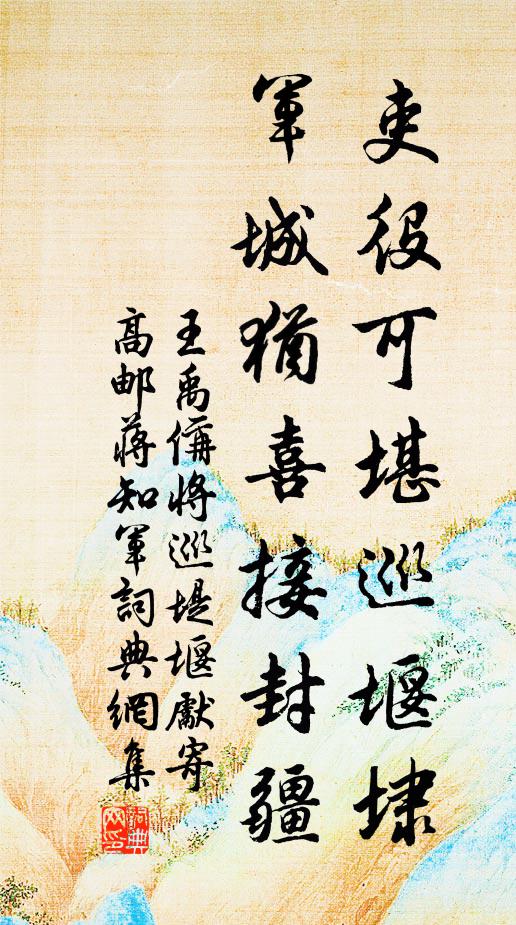 吏役可堪巡堰埭
軍城猶喜接封疆
王禹偁將巡堤堰獻寄
高邮蔣知軍詞典網集
詞典网印